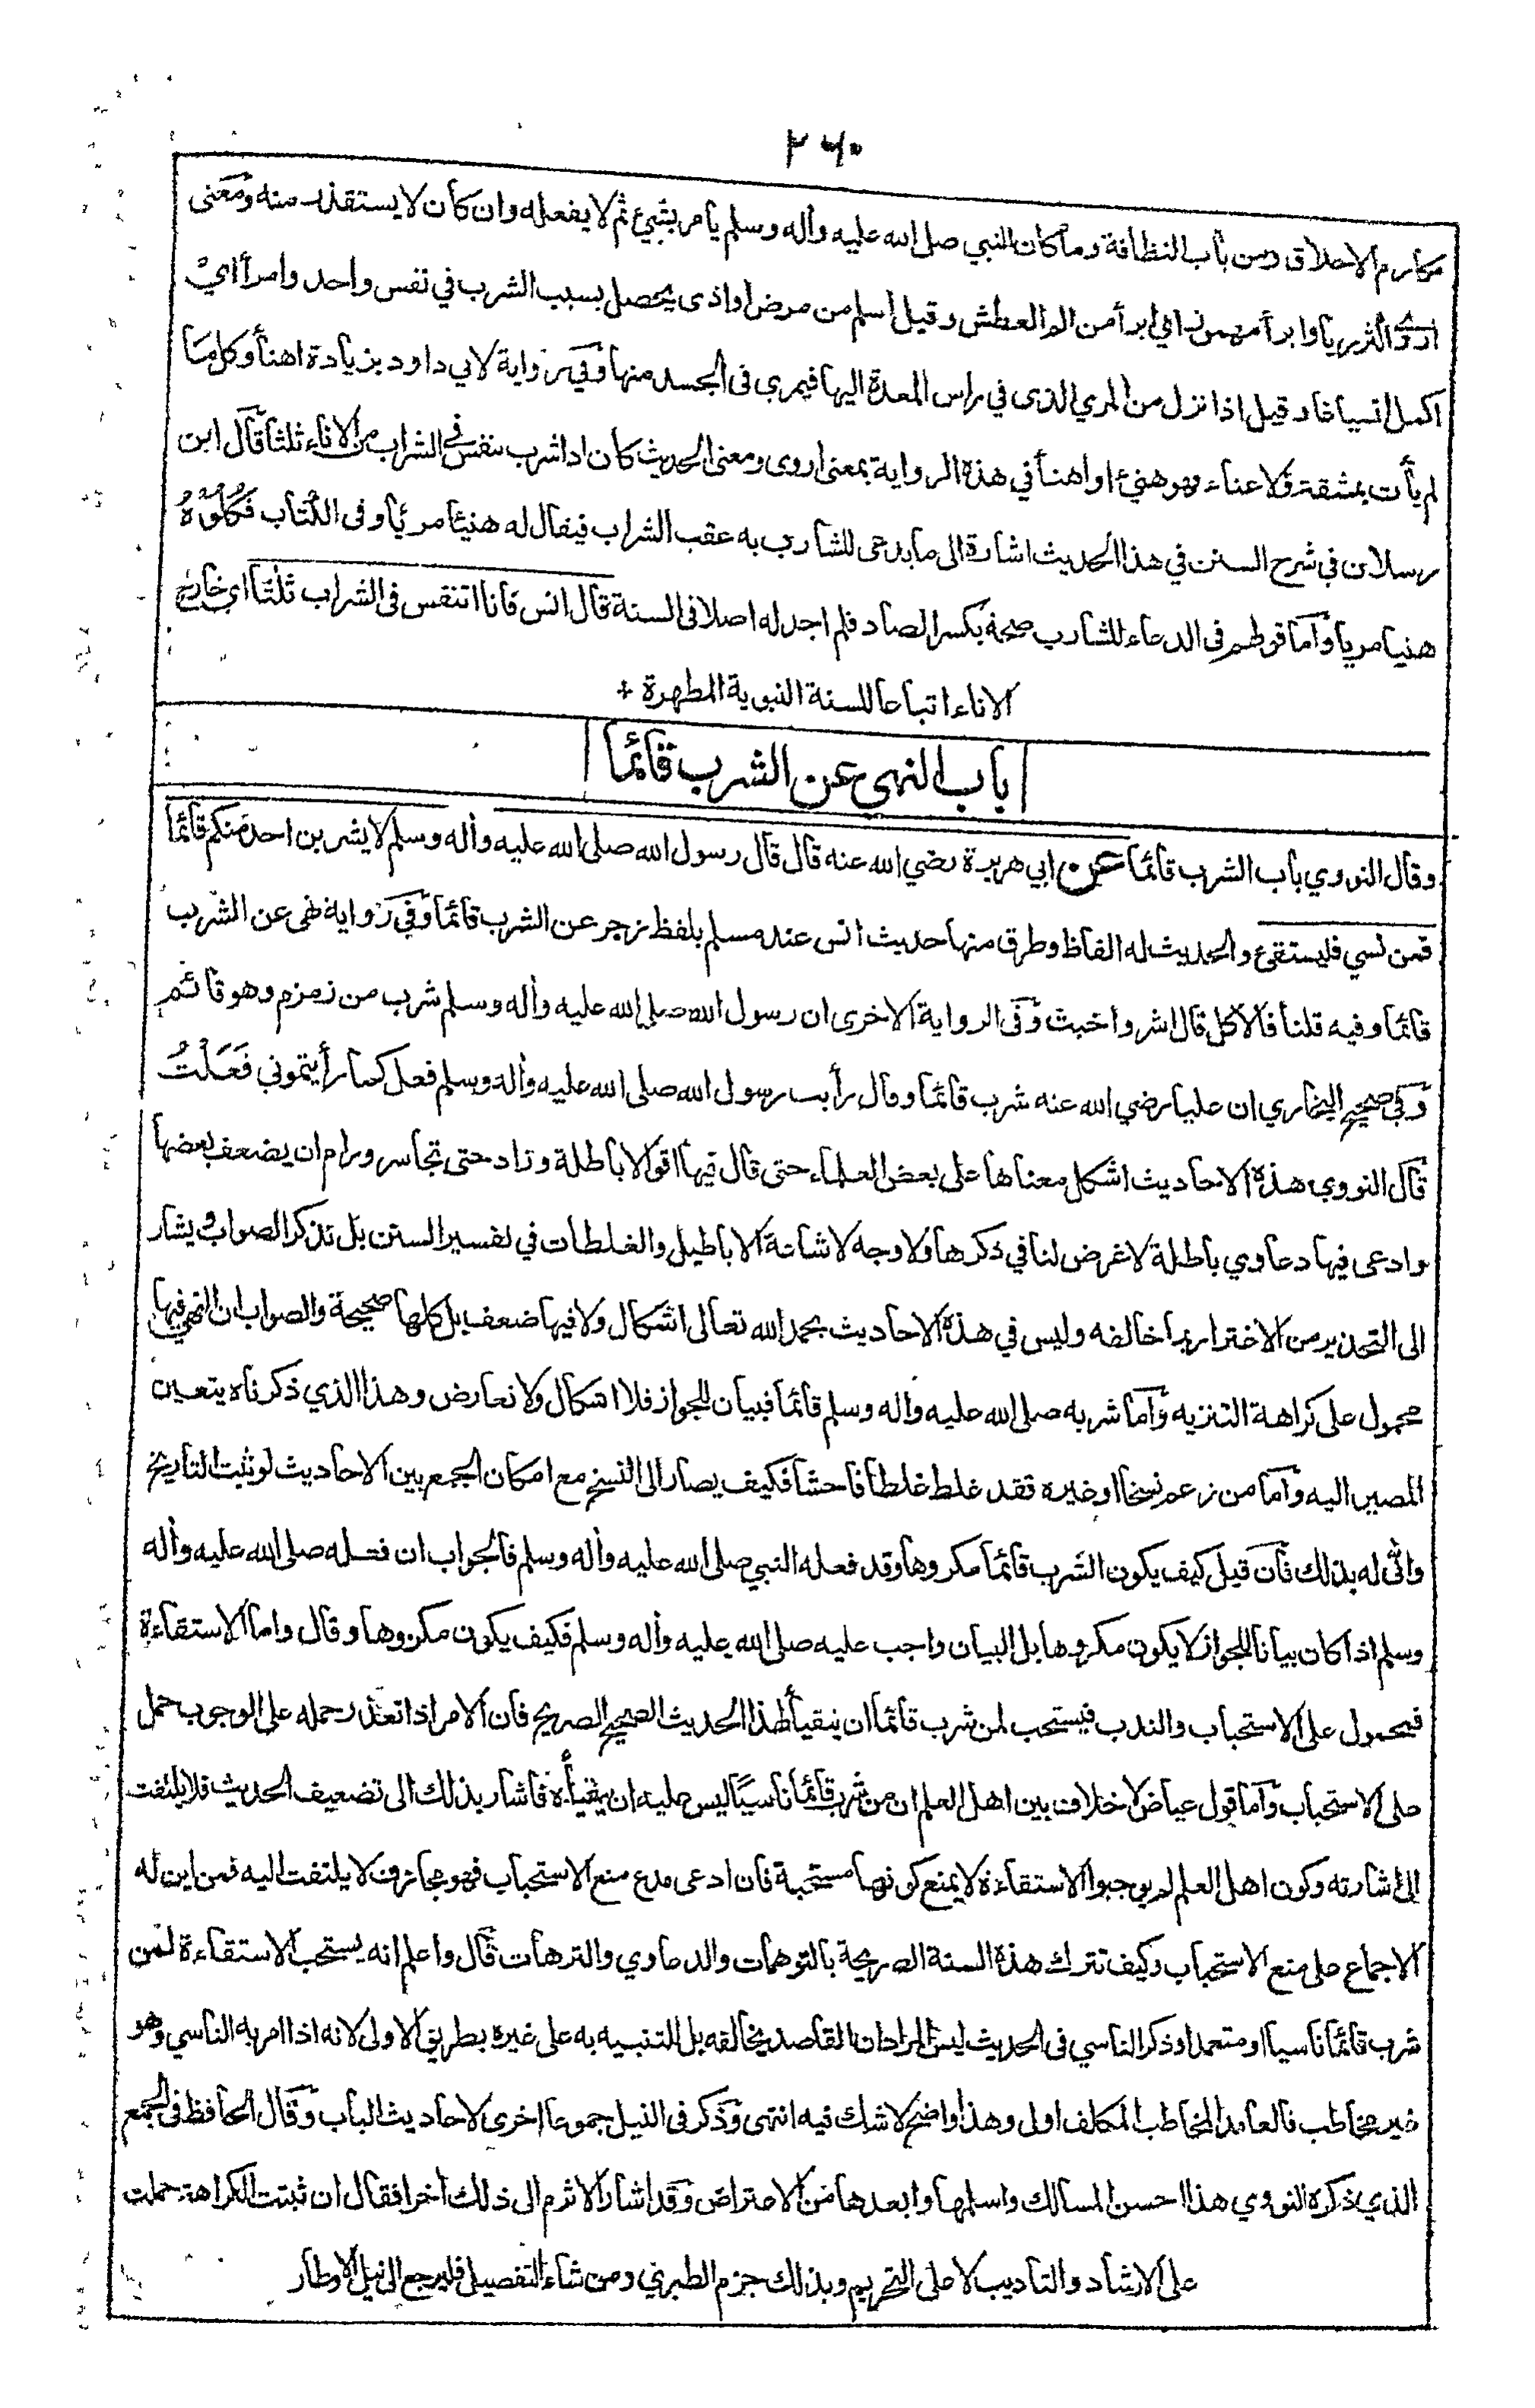 ٢٦٠
مكارم الاخلاق ومن باب النظافة وما كان النبي صلى الله عليه وأله وسلم يأمر بشيئ ثم لا يفعله وان كان لا يستقذر منه ومعنى
اروى اكثر ريا وابرأ مهموز اي ابرأ من الم العطش وقيل اسلم من مرض او اذى يحصل بسبب الشرب في نفس واحد وامرأ اي
اكمل انسياغا وقيل اذا نزل من المري الذى في راس المعدة اليها فيمرى فى الجسد منها وفي رواية لابي داود بزيادة اهنأ وكل ما
لم يأت بمشقة ولا عناء فهو هنيئ او اهنأ في هذه الرواية بمعنى اروى ومعنى الحديث كان اذا شرب تنفس فى الشراب من الاناء ثلثا قال ابن
رسلان في شرح السنن في هذا الحديث اشارة الى ما يدعى للشارب به عقب الشراب فيقال له هنيئا مريأ وفى الكتاب فَكُلُوْهُ
هنيا مريا وأما قولهم فى الدعاء للشارب صحة بكسر الصاد فلم اجد له اصلا فى السنة قال انس فانا اتنفس فى الشراب ثلثا اي خارج
الاناء اتباعا للسنة النبوية المطهرة +
باب النهى عن الشرب قائما
وقال النووي باب الشرب قائما عن ابي هريرة رضي الله عنه قال قال رسول الله صلى الله عليه وأله وسلم لا يشربن احد منكم قائما
فمن نسي فليستقئ والحديث له الفاظ وطرق منها حديث انس عند مسلم بلفظ زجر عن الشرب قائما وفي رواية نهى عن الشرب
قائما وفيه قلنا فالاكل قال اشر واخبث وفى الرواية الاخرى ان رسول الله صلى الله عليه وأله وسلم شرب من زمزم وهو قائم
وفي صحيح البخاري ان عليا رضي الله عنه شرب قائما وقال رأيت رسول الله صلى الله عليه وأله وسلم فعل كما رأيتموني فَعَلْتُ
قال النووي هذه الاحاديث اشكل معناها على بعض العلماء حتى قال فيها اقوالا باطلة وزاد حتى تجاسر ورام ان يضعف بعضها
وادعى فيها دعاوي باطلة لا غرض لنا في ذكرها ولا وجه لاشاعة الاباطيل والغلطات في تفسير السنن بل نذكر الصواب ويشار
الى التحذير من الاغترار بما خالفه وليس في هذه الاحاديث بحمد الله تعالى اشكال ولا فيها ضعف بل كلها صحيحة والصواب ان النهي فيها
محمول على كراهة التنزيه وأما شربه صلى الله عليه واله وسلم قائما فبيان للجواز فلا اشكال ولا تعارض وهذا الذي ذكرناه يتعين
المصير اليه وأما من زعم نسخا او غيره فقد غلط غلطا فاحشا فكيف يصار الى النسخ مع امكان الجمع بين الاحاديث لو ثبت التاريخ
وانى له بذلك فان قيل كيف يكون الشرب قائما مكروها وقد فعله النبي صلى الله عليه وأله وسلم فالجواب ان فعله صلى الله عليه وأله
وسلم اذا كان بيانا للجواز لا يكون مكروها بل البيان واجب عليه صلى الله عليه وأله وسلم فكيف يكون مكروها وقال واما الاستقاءة
فمحمول على الاستحباب والندب فيستحب لمن شرب قائما ان يتقيأ لهذا الحديث الصحيح الصريح فان الامر اذا تعذر حمله على الوجوب حمل
على الاستحباب وأما قول عياض لا خلاف بين اهل العلم ان من شرب قائما ناسيًا ليس عليه ان يتقيأه فاشار بذلك الى تضعيف الحديث فلا يلتفت
الى اشارته وكون اهل العلم لم يوجبوا الاستقاءة لا يمنع كونها مستحبة فان ادعى مدع منع الاستحباب فهو مجازف لا يلتفت اليه فمن اين له
الاجماع على منع الاستحباب وكيف تترك هذه السنة الصريحة بالتوهمات والدعاوي والترهات قال واعلم انه يستحب الاستقاءة لمن
شرب قائما ناسيا او متعمدا وذكر الناسي فى الحديث ليس المراد ان القاصد يخالفه بل للتنبيه به على غيره بطريق الاولى لانه اذا امر به الناسي وهو
غير مخاطب فالعامد المخاطب المكلف اولى وهذا واضح لا شك فيه انتهى وذكر فى النيل جموعا اخرى لاحاديث الباب وقال الحافظ فى الجمع
الذي ذكره النووي هذا احسن المسالك واسلمها وابعدها من الاعتراض وقد اشار الاثرم الى ذلك أخرا فقال ان ثبتت الكراهة حملت
على الارشاد والتاديب لا على التحريم وبذلك جزم الطبري ومن شاء التفصيل فليرجع الى نيل الاوطار